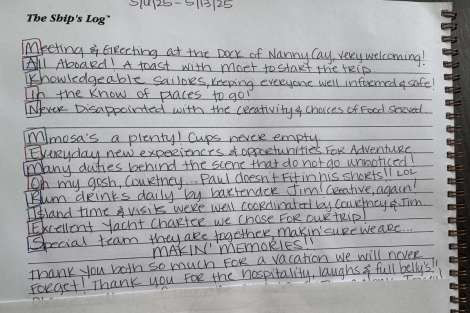 5/6/25 - 5/13/25
The Ship's Log
Meeting & Greeting at the Dock of Nanny Cay, very welcoming!
All Aboard! A toast with Moet to start the trip
Knowledgeable Sailors, keeping everyone well informed & safe!
In the know of places to go!
Never Disappointed with the creativity & choices of Food served
Mimosa's a plenty! Cups never empty
Everyday new experiences & opportunities for Adventure
Many duties behind the scene that do not go unnoticed!
Oh my gosh, Courtney... Paul doesn't fit in his shorts!! LOL
Rum drinks daily by bartender Jim! Creative, again!
Island time & visits were well coordinated by Courtney & Jim
Excellent Yacht Charter we chose for our trip!
Special team they are together, makin' sure we are...
MAKIN' MEMORIES!!
Thank you both so much for a vacation we will never
forget! Thank you for the hospitality, laughs & full belly's!!